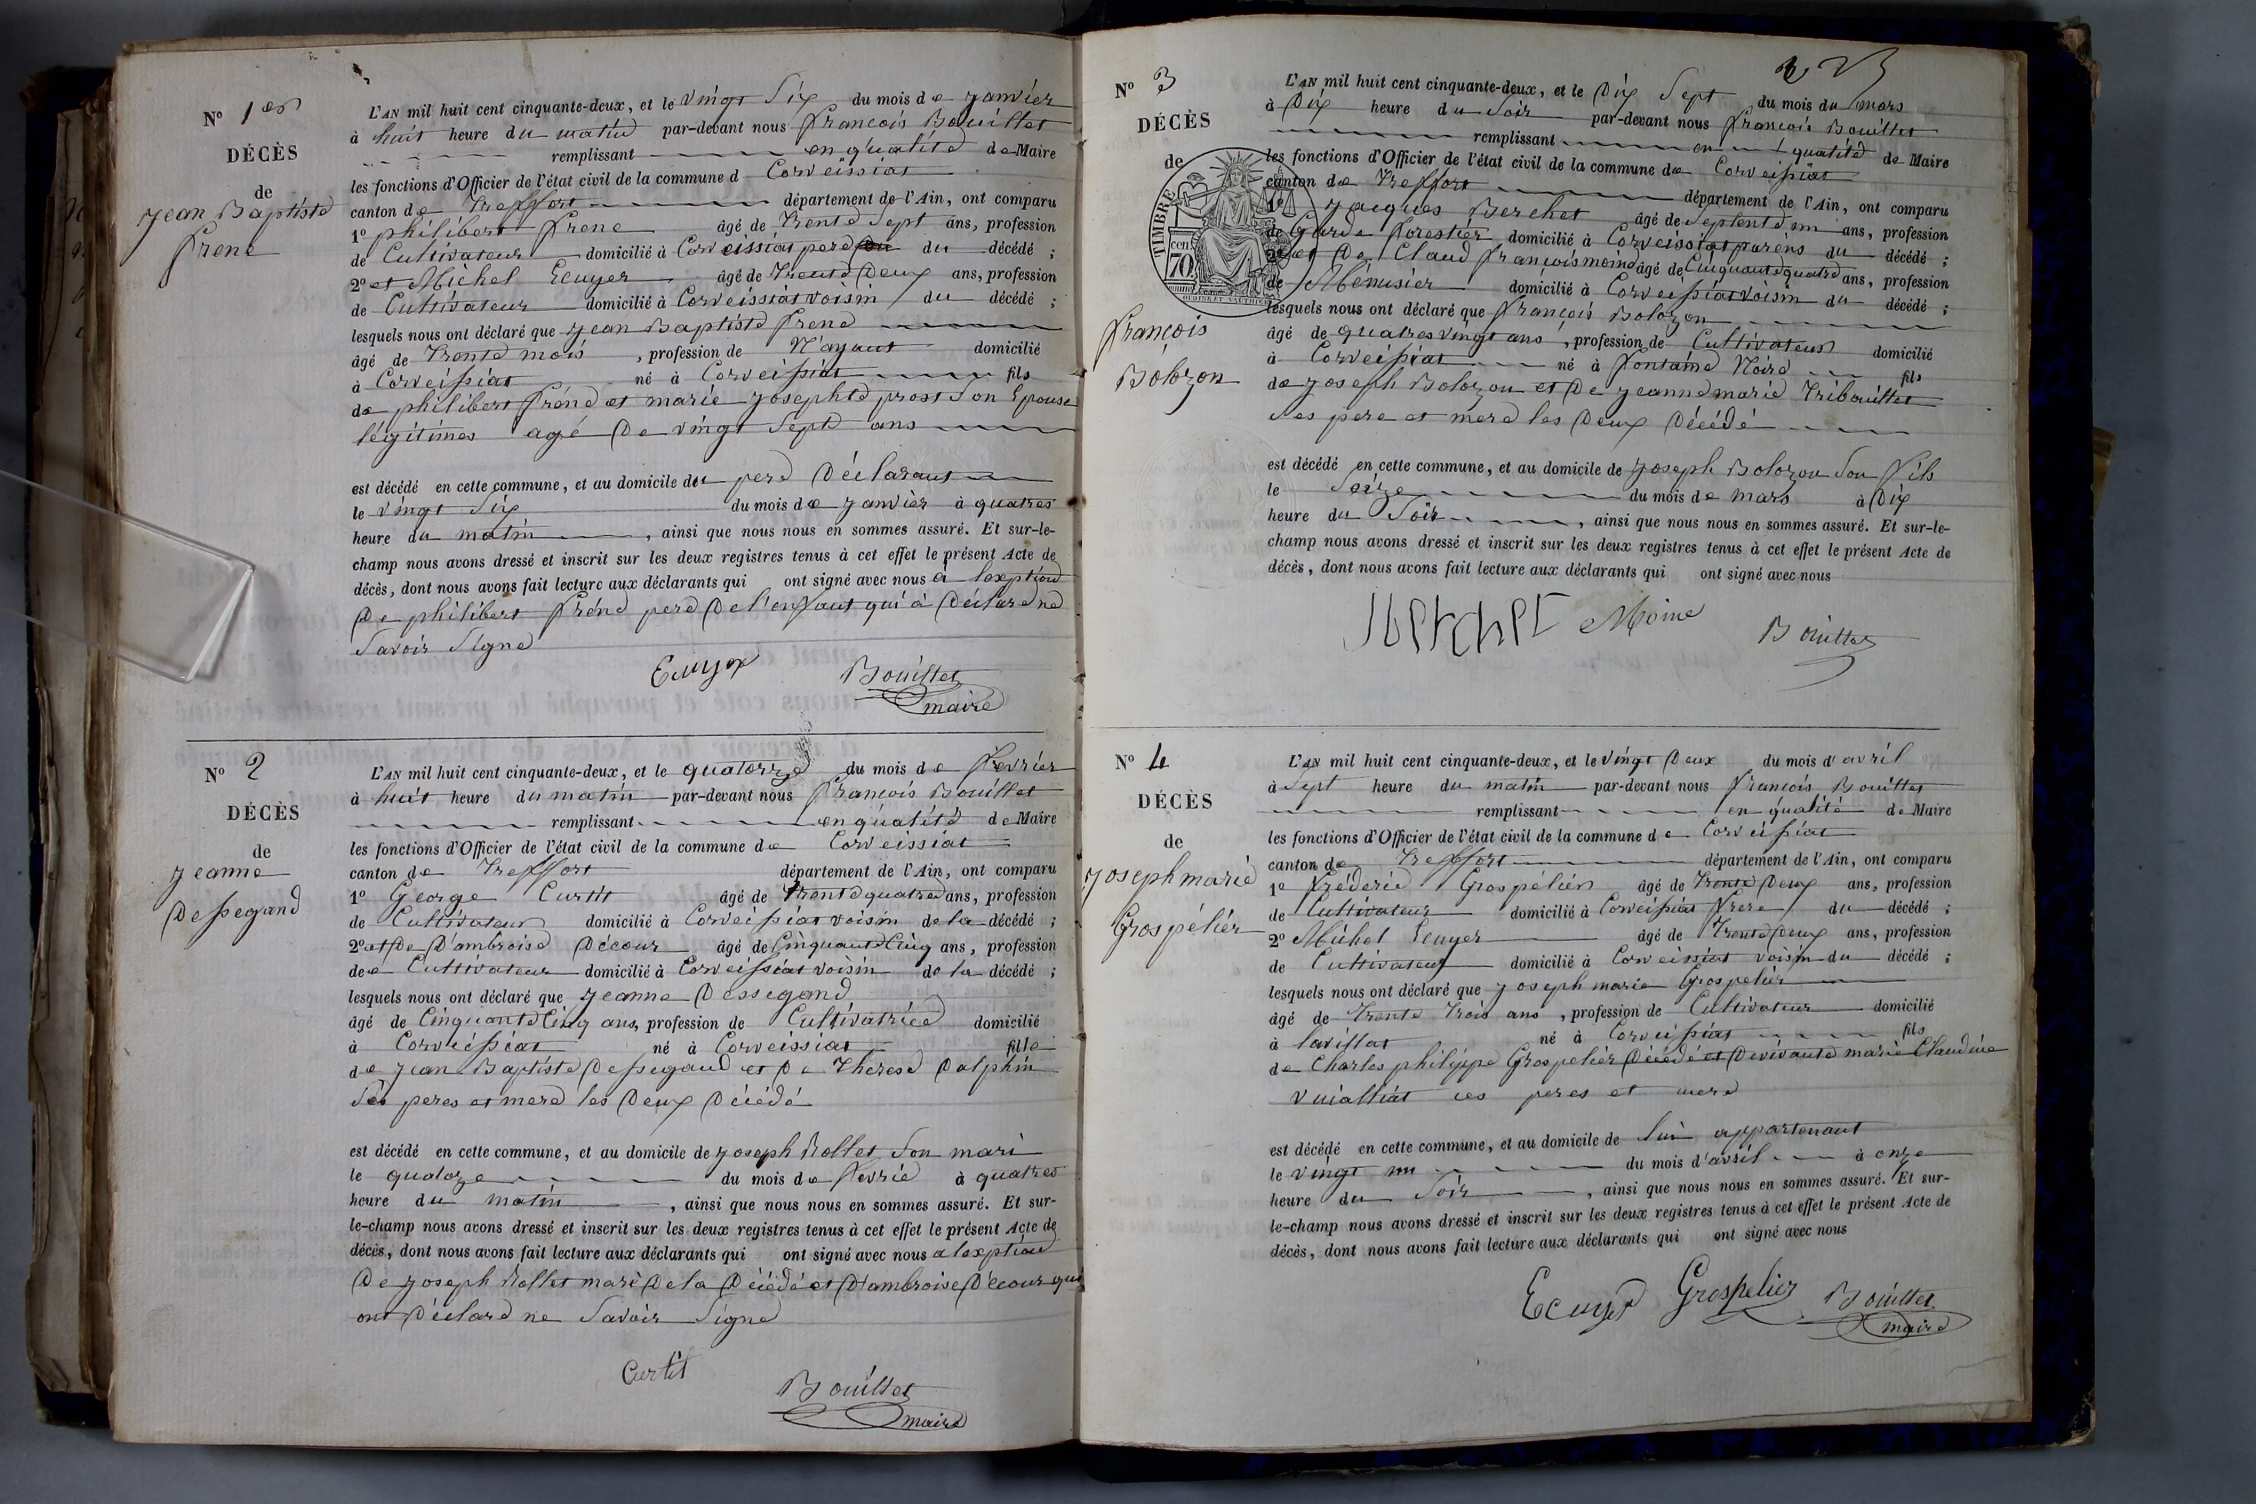 N° 1er
DÉCÈS
de
Jean Baptiste
frene
L'AN mil huit cent cinquante-deux, et le vingt Six du mois de janvier
à huit heure du matin par-devant nous françois Bouillet
remplissant en qualité de Maire
les fonctions d'Officier de l'état civil de la commune d Corveissiat
canton de Treffort département de l'Ain, ont comparu
1° philibert frene âgé de Trente Sept ans, profession
de Cultivateur domicilié à Corveissiat pere du décédé ;
2° et Michel Ecuyer âgé de Trente Deux ans, profession
de Cultivateur domicilié à Corveissiat voisin du décédé ;
lesquels nous ont déclaré que jean Baptiste frene
âgé de Trente mois , profession de N'ayant domicilié
à Corveissiat né à Corveissiat fils
de philibert fréne et marie josephte prost Son Epouse
légitimes agé De vingt Sept ans
est décédé en cette commune, et au domicile du pere Déclarant
le vingt Six du mois de janvier à quatres
heure du matin , ainsi que nous nous en sommes assuré. Et sur-le-
champ nous avons dressé et inscrit sur les deux registres tenus à cet effet le présent Acte de
décès, dont nous avons fait lecture aux déclarants qui ont signé avec nous à lexption
De philibert fréne pere De l'enfant qui à Déclare ne
Savoir Signe
Ecuyer Bouillet
maire
N° 2
DÉCÈS
de
jeanne
Dessegand
L'AN mil huit cent cinquante-deux, et le quatorze du mois de fevrier
à huit heure du matin par-devant nous françois Bouillet
remplissant en qualité de Maire
les fonctions d'Officier de l'état civil de la commune de Corveissiat
canton de Treffort département de l'Ain, ont comparu
1° George Curtit âgé de trente quatre ans, profession
de Cultivateur domicilié à Corveissiat voisin de la décédé ;
2° et De D'ambroise Decour âgé de Cinquante Cinq ans, profession
de Cultivateur domicilié à Corveissiat voisin de la décédé ;
lesquels nous ont déclaré que jeanne Dessegand
âgé de Cinquante Cinq ans, profession de Cultivatrice domicilié
à Corveissiat né à Corveissiat fille
de jean Baptiste Dessegaud et De Therese Dalphin
Ses peres et mere les Deux Décédé
est décédé en cette commune, et au domicile de joseph Rollet Son mari
le quatoze du mois de fevrié à quatres
heure du matin , ainsi que nous nous en sommes assuré. Et sur-
le-champ nous avons dressé et inscrit sur les deux registres tenus à cet effet le présent Acte de
décès, dont nous avons fait lecture aux déclarants qui ont signé avec nous a lexption
De joseph Rollet mari De la Décédé et D'ambroise Décour qui
ont Déclare ne Savoir Signe
Curtit
Bouillet
maire
N° 3
DÉCÈS
de
françois
Bolozon
TIMBRE
70
cen
L'AN mil huit cent cinquante-deux, et le Dix Sept du mois du mars
à Dix heure du Soir par-devant nous françois Bouillet
remplissant en qualité de Maire
les fonctions d'Officier de l'état civil de la commune de Corveissiat
canton de Treffort département de l'Ain, ont comparu
1° jacques Berchet âgé de Septente un ans, profession
de Garde forestier domicilié à Corveissiat parens du décédé ;
2° et De Claud françois moine âgé de Cinquante quatre ans, profession
de Ménusier domicilié à Corveissiat voisin du décédé ;
lesquels nous ont déclaré que françois Bolozon
âgé de quatres vingt ans , profession de Cultivateur domicilié
à Corveissiat né à fontaine Noire fils
de joseph Bolozon et De jeanne marie Tribouillet
Ses pere et mere les Deux Décédé
est décédé en cette commune, et au domicile de joseph Bolozon Son fils
le Seize du mois de mars à Dix
heure du Soir , ainsi que nous nous en sommes assuré. Et sur-le-
champ nous avons dressé et inscrit sur les deux registres tenus à cet effet le présent Acte de
décès, dont nous avons fait lecture aux déclarants qui ont signé avec nous
Berchet Moine Bouillet
N° 4
DÉCÈS
de
joseph marie
Grospélier
L'AN mil huit cent cinquante-deux, et le vingt Deux du mois d'avril
à Sept heure du matin par-devant nous françois Bouillet
remplissant en qualité de Maire
les fonctions d'Officier de l'état civil de la commune de Corveissiat
canton de Treffort département de l'Ain, ont comparu
1° fréderic Grospélier âgé de Trente Deux ans, profession
de Cultivateur domicilié à Corveissiat frere du décédé ;
2° Michel Ecuyer âgé de Trente Deux ans, profession
de Cultivateur domicilié à Corveissiat voisin du décédé ;
lesquels nous ont déclaré que joseph marie Grospelier
âgé de Trente Trois ans , profession de Cultivateur domicilié
à lavillat né à Corveissiat fils
de Charles philippe Grospelier Décédé et De vivante marie Claudine
vuialliat ces peres et mere
est décédé en cette commune, et au domicile de lui appartenant
le vingt un du mois d'avril à onze
heure du Soir , ainsi que nous nous en sommes assuré. Et sur-
le-champ nous avons dressé et inscrit sur les deux registres tenus à cet effet le présent Acte de
décès, dont nous avons fait lecture aux déclarants qui ont signé avec nous
Ecuyer Grospelier Bouillet
maire